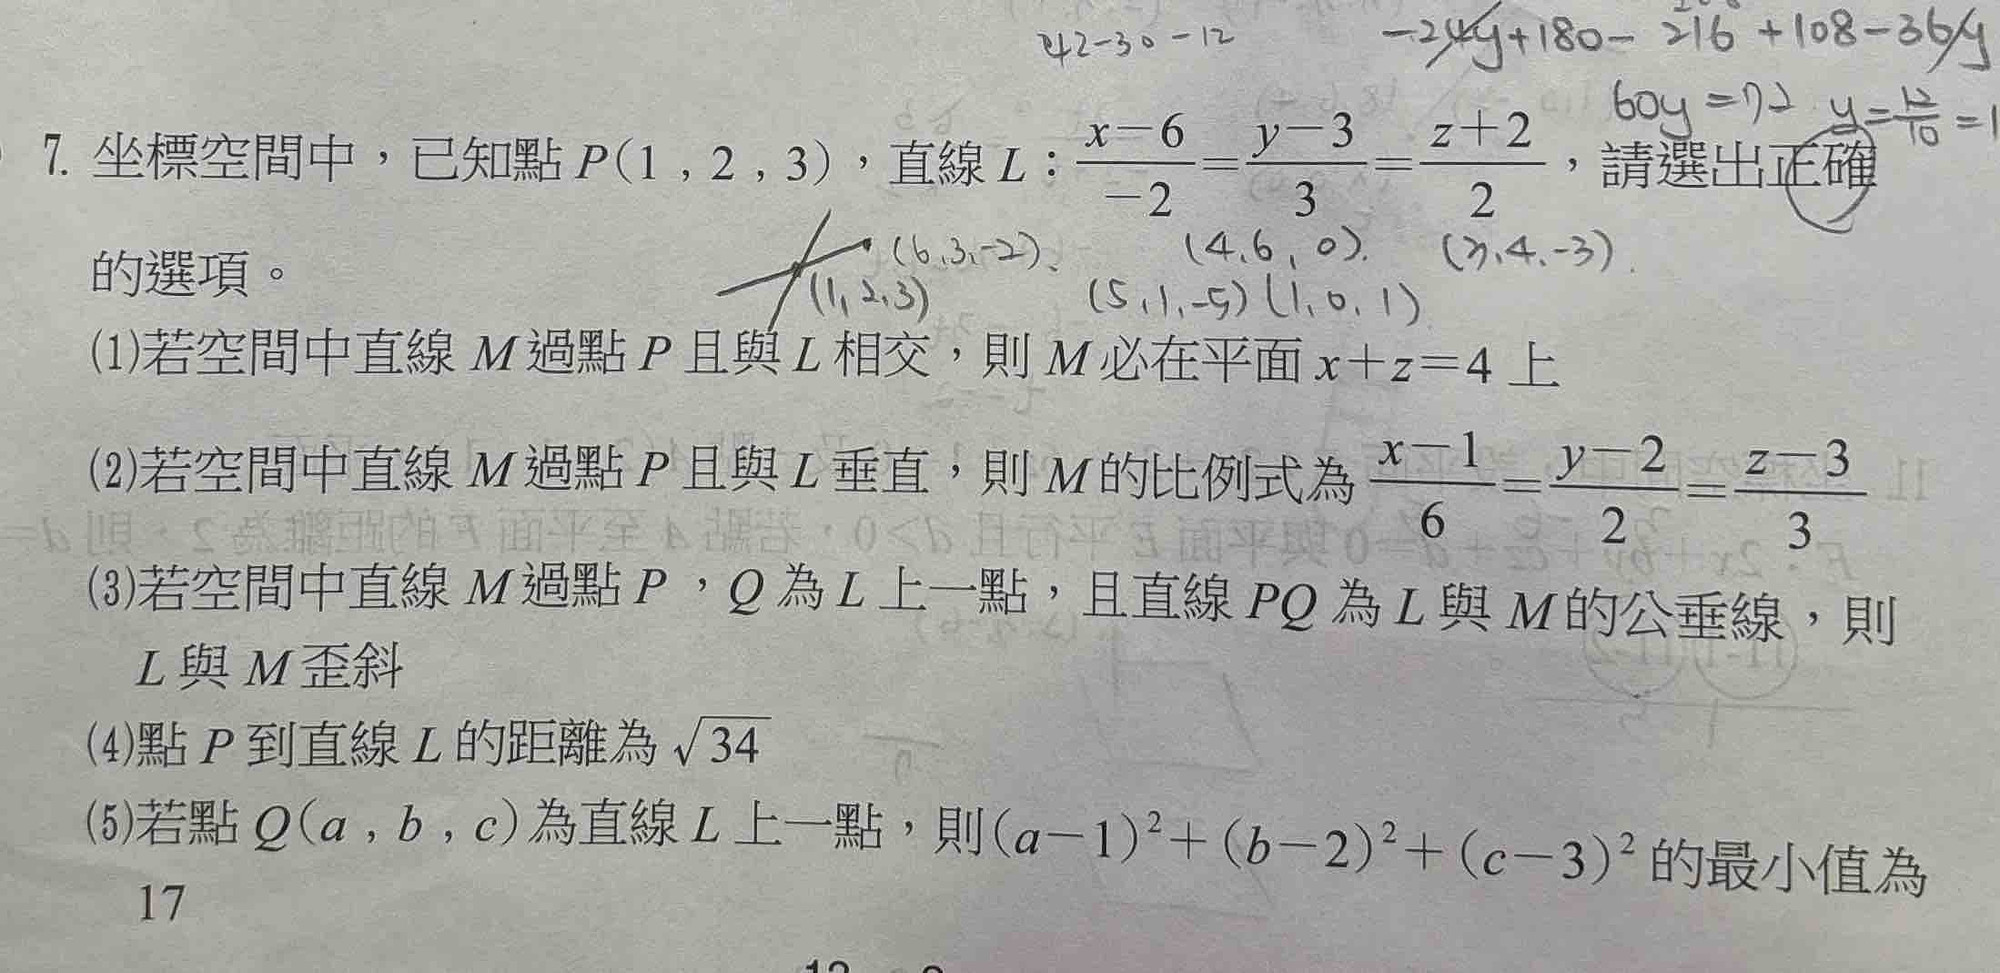 42-30-12
-24y+180-216+108-36y
60y=72 y=12/10=1
7. 坐標空間中，已知點 P(1，2，3)，直線 L：(x-6)/(-2)=(y-3)/3=(z+2)/2，請選出正確
的選項。
(6,3,-2)、 (4,6,0). (7,4,-3).
(1,2,3) (5,1,-5) (1,0,1)
(1)若空間中直線 M 過點 P 且與 L 相交，則 M 必在平面 x+z=4 上
(2)若空間中直線 M 過點 P 且與 L 垂直，則 M 的比例式為 (x-1)/6=(y-2)/2=(z-3)/3
(3)若空間中直線 M 過點 P，Q 為 L 上一點，且直線 PQ 為 L 與 M 的公垂線，則
L 與 M 歪斜
(4)點 P 到直線 L 的距離為 √34
(5)若點 Q(a，b，c)為直線 L 上一點，則(a-1)²+(b-2)²+(c-3)² 的最小值為
17